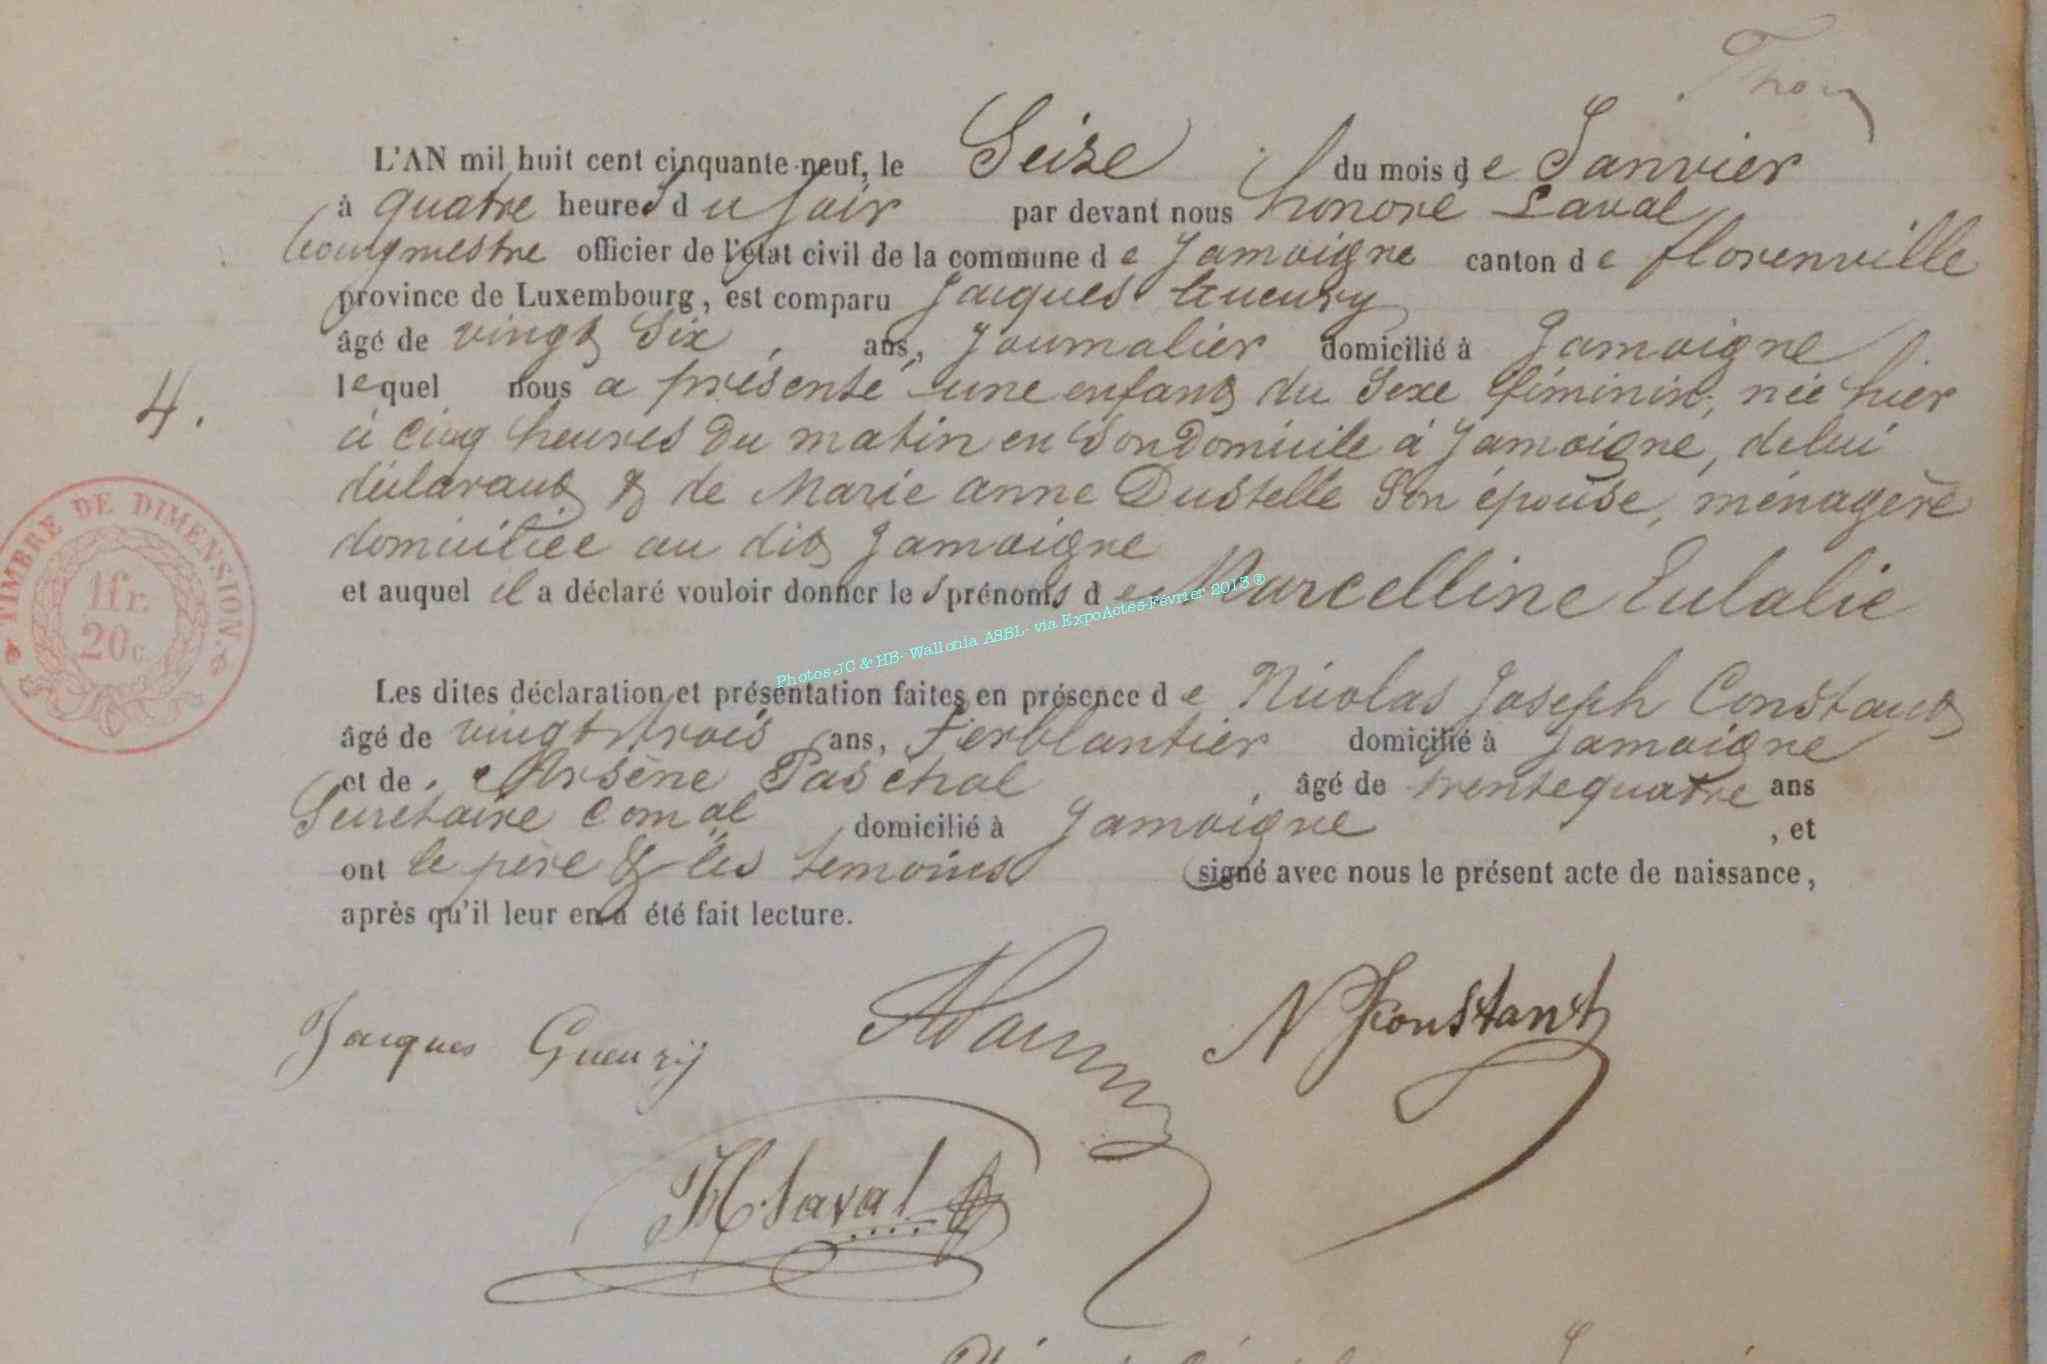 L'AN mil huit cent cinquante-neuf, le Seize du mois de Janvier
à quatre heures du soir par devant nous honoré Laval
bourgmestre officier de l'état civil de la commune de Jamoigne canton de florenville
province de Luxembourg, est comparu Jacques Gueury
âgé de vingt Six ans, Journalier domicilié à Jamoigne
lequel nous a présenté une enfant du Sexe féminin, née hier
à cinq heures du matin en Son Domicile à Jamoigne, de lui
déclarant & de Marie anne Dustelle Son épouse, ménagère
domiciliée au dit Jamoigne
et auquel il a déclaré vouloir donner les prénoms de Marcelline Eulalie
Photos JC & HB- Wallonia ASBL- via ExpoActes-Février 2013 ®
Les dites déclaration et présentation faites en présence de Nicolas Joseph Constant
âgé de vingt trois ans, Ferblantier domicilié à Jamoigne
et de Arsène Paschal âgé de trente quatre ans
Secrétaire Comal domicilié à Jamoigne, et
ont le père & les témoins signé avec nous le présent acte de naissance,
après qu'il leur en a été fait lecture.
4.
TIMBRE DE DIMENSION
1fr.
20c
Jacques Gueury
N Constant
H. Laval